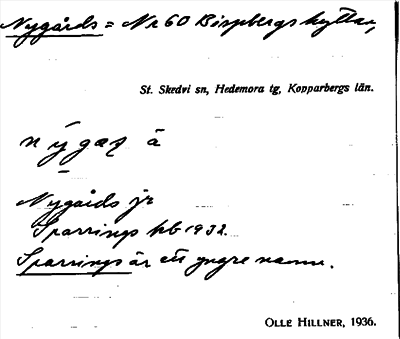 Nygårds = Nr 60 Bispbergshyttan,
St. Skedvi sn, Hedemora tg, Kopparbergs län.
nýgaʐ ä
Nygårds jr
Sparrings hb 1932.
Sparrings är ett yngre namn.
OLLE HILLNER, 1936.